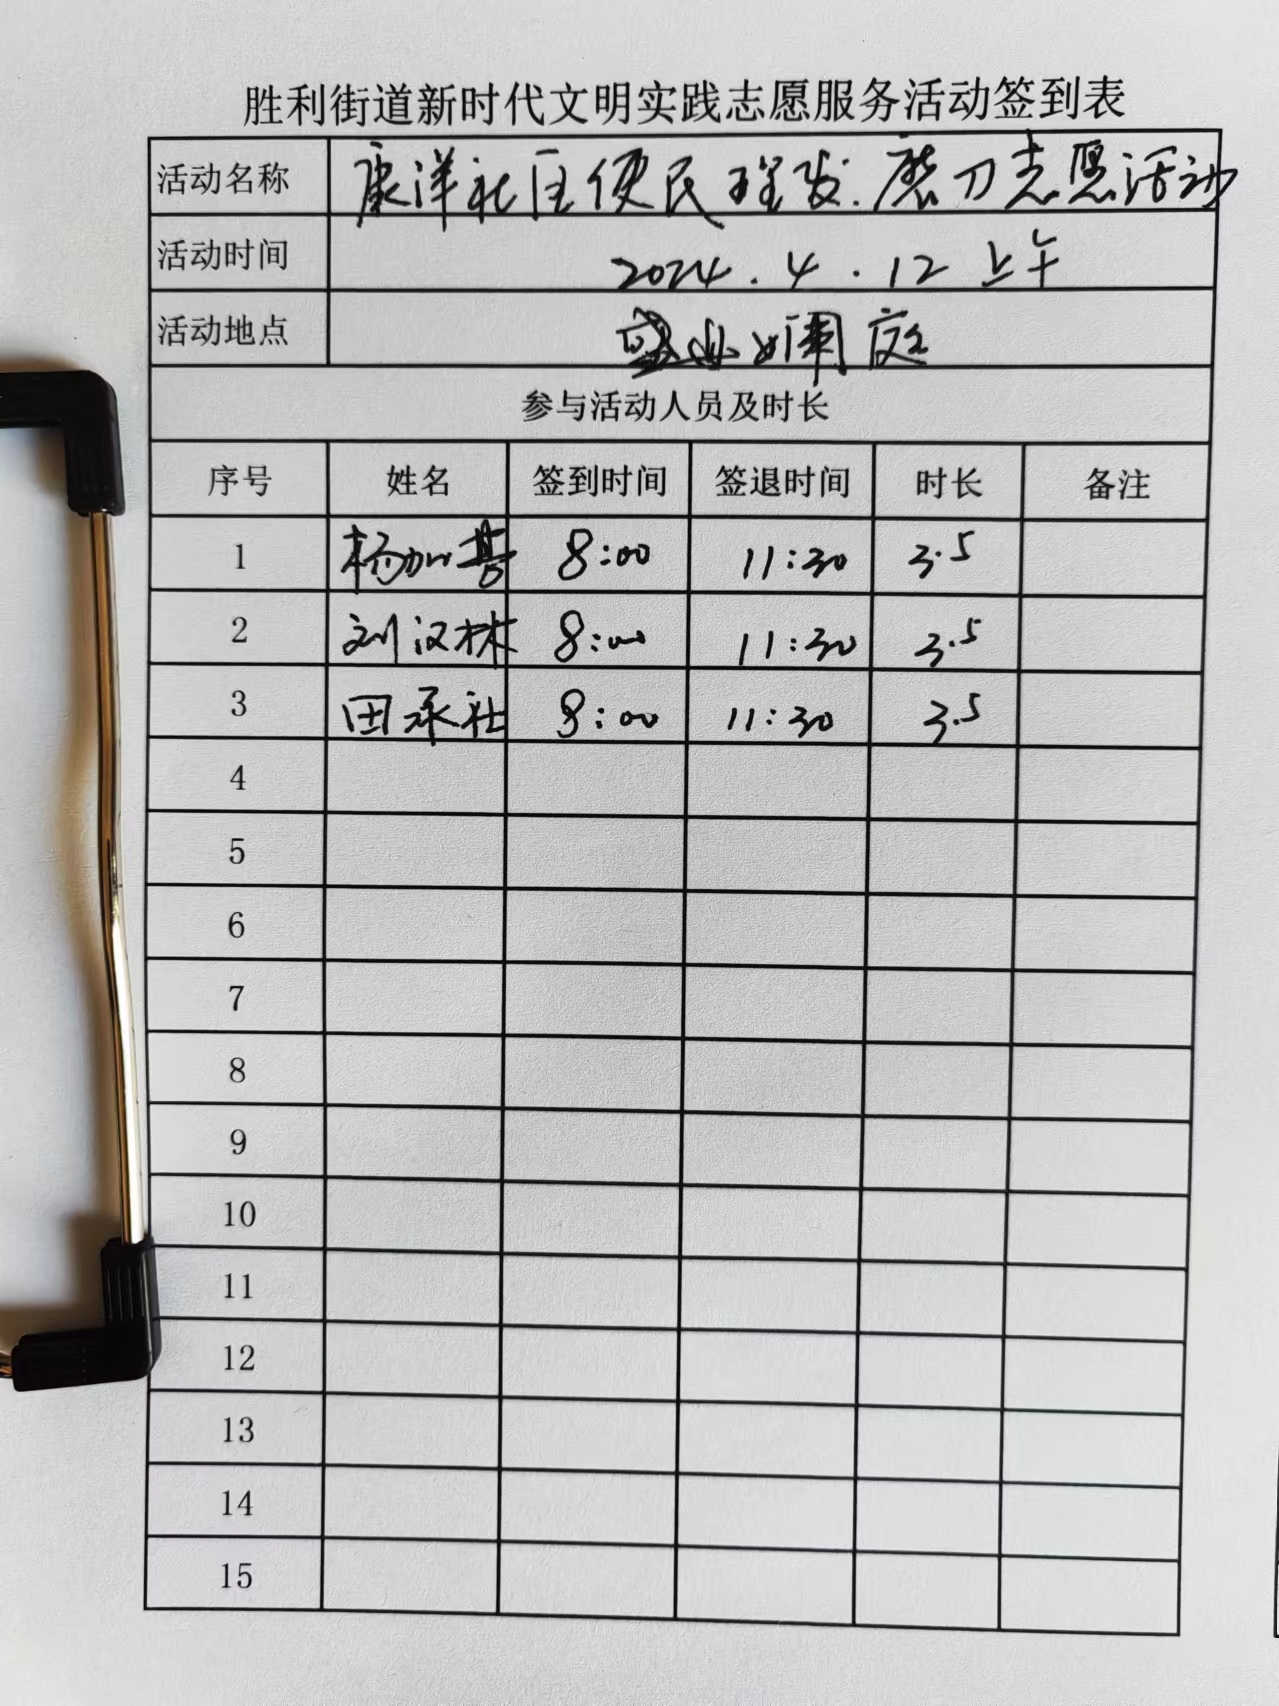 胜利街道新时代文明实践志愿服务活动签到表
活动名称 康洋社区便民理发.磨刀志愿活动
活动时间 2024.4.12 上午
活动地点 盛业 庭
参与活动人员及时长
序号 姓名 签到时间 签退时间 时长 备注
1 杨加善 8:00 11:30 3.5
2 刘汉林 8:00 11:30 3.5
3 田承社 8:00 11:30 3.5
4
5
6
7
8
9
10
11
12
13
14
15